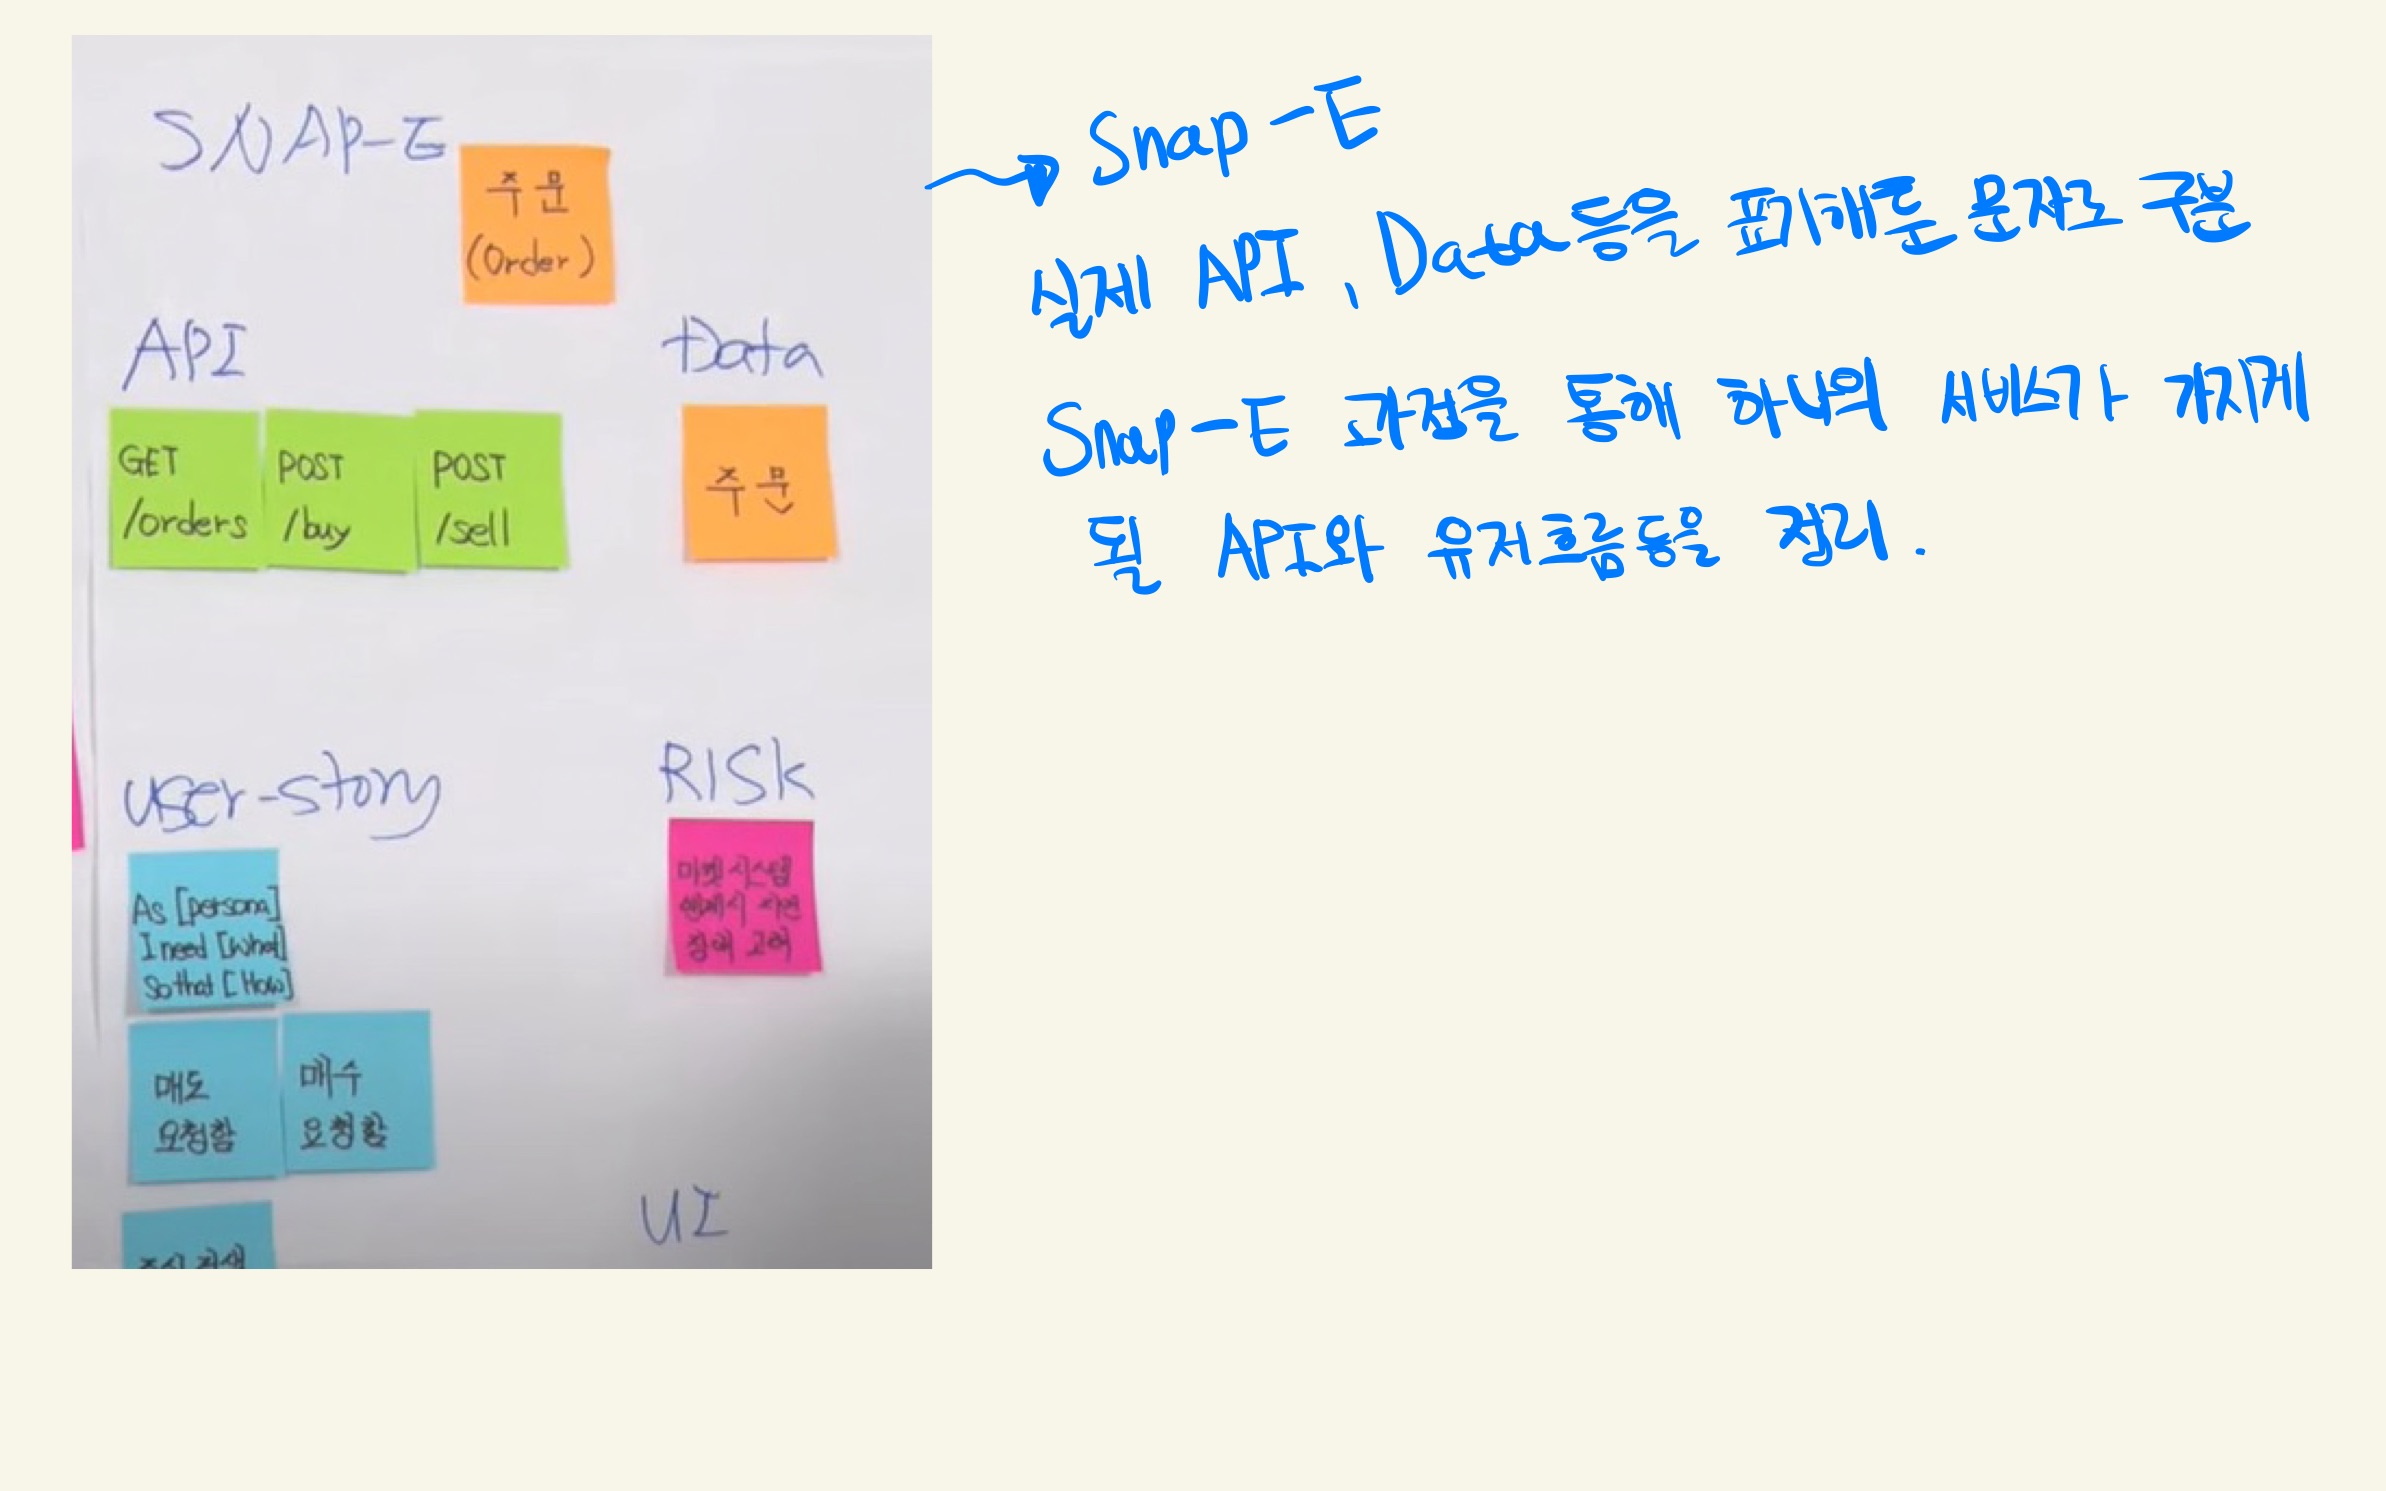 SNAP-E
주문
(Order)
API
GET
/orders
POST
/buy
POST
/sell
Data
주문
user-story
As [persona]
I need [What]
So that [How]
매도
요청함
매수
요청함
RISK
마켓 시스템
연계시 지연
장애 고려
UI
Snap-E
실제 API, Data등을 표기해둔 문자로 구분
Snap-E 과정을 통해 하나의 서비스가 가지게
될 API와 유저흐름 등을 정리.